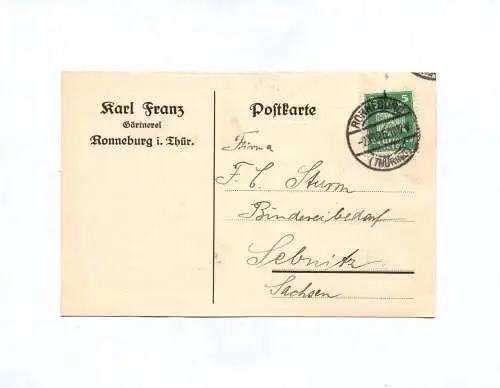 Karl Franz
Gärtnerei
Ronneburg i. Thür.
Postkarte
5
RONNEBURG
(THÜRING)
Firma
F. C. Sturm
Bindereibedarf
Sebnitz
Sachsen